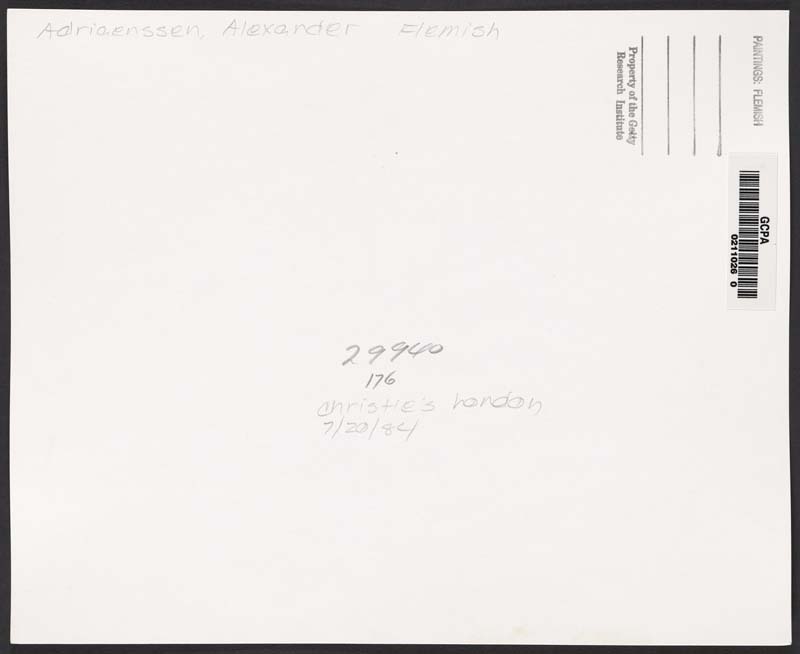 Adriaenssen, Alexander Flemish
PAINTINGS: FLEMISH
Property of the Getty
Research Institute
GCPA
0211026 0
29940
176
Christie's London
7/20/84